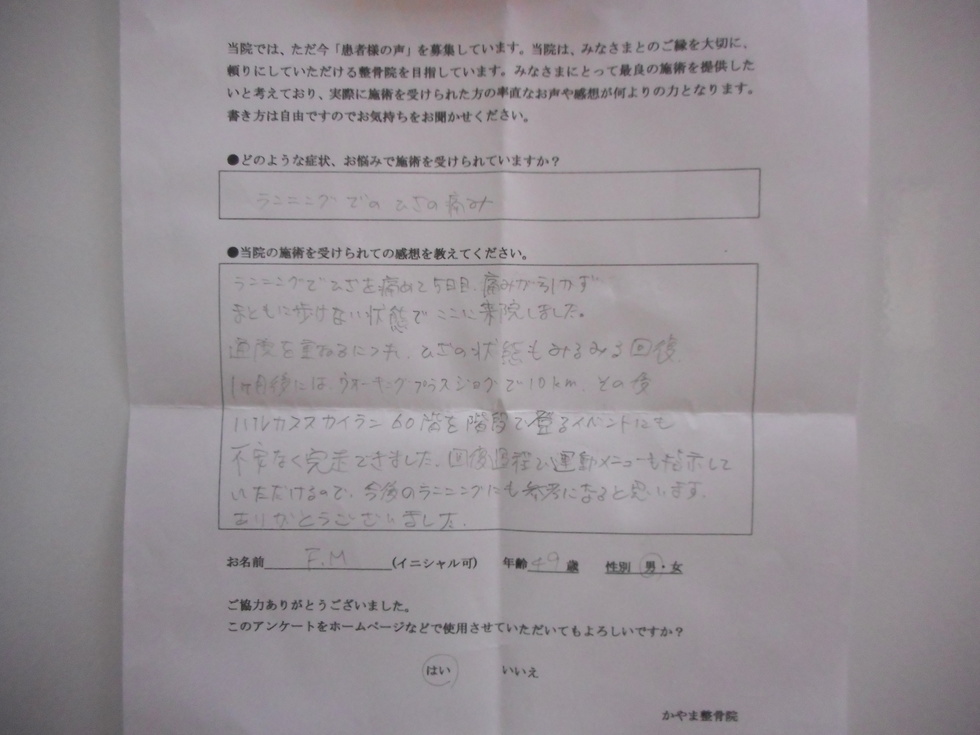 当院では、ただ今「患者様の声」を募集しています。当院は、みなさまとのご縁を大切に、
頼りにしていただける整骨院を目指しています。みなさまにとって最良の施術を提供した
いと考えており、実際に施術を受けられた方の率直なお声や感想が何よりの力となります。
書き方は自由ですのでお気持ちをお聞かせください。
●どのような症状、お悩みで施術を受けられていますか？
ランニングでのひざの痛み
●当院の施術を受けられての感想を教えてください。
ランニングでひざを痛めて5日目、痛みが引かず
まともに歩けない状態でここに来院しました。
通院を重ねるにつれ、ひざの状態もみるみる回復、
1ヶ月後には、ウォーキングプラスジョグで10km、その後
ハルカススカイラン60階を階段で登るイベントにも
不安なく完走できました。回復過程で運動メニューも指示して
いただけるので、今後のランニングにも参考になると思います。
ありがとうございました。
お名前 F.M (イニシャル可) 年齢 49 歳 性別 男・女
ご協力ありがとうございました。
このアンケートをホームページなどで使用させていただいてもよろしいですか？
はい いいえ
かやま整骨院